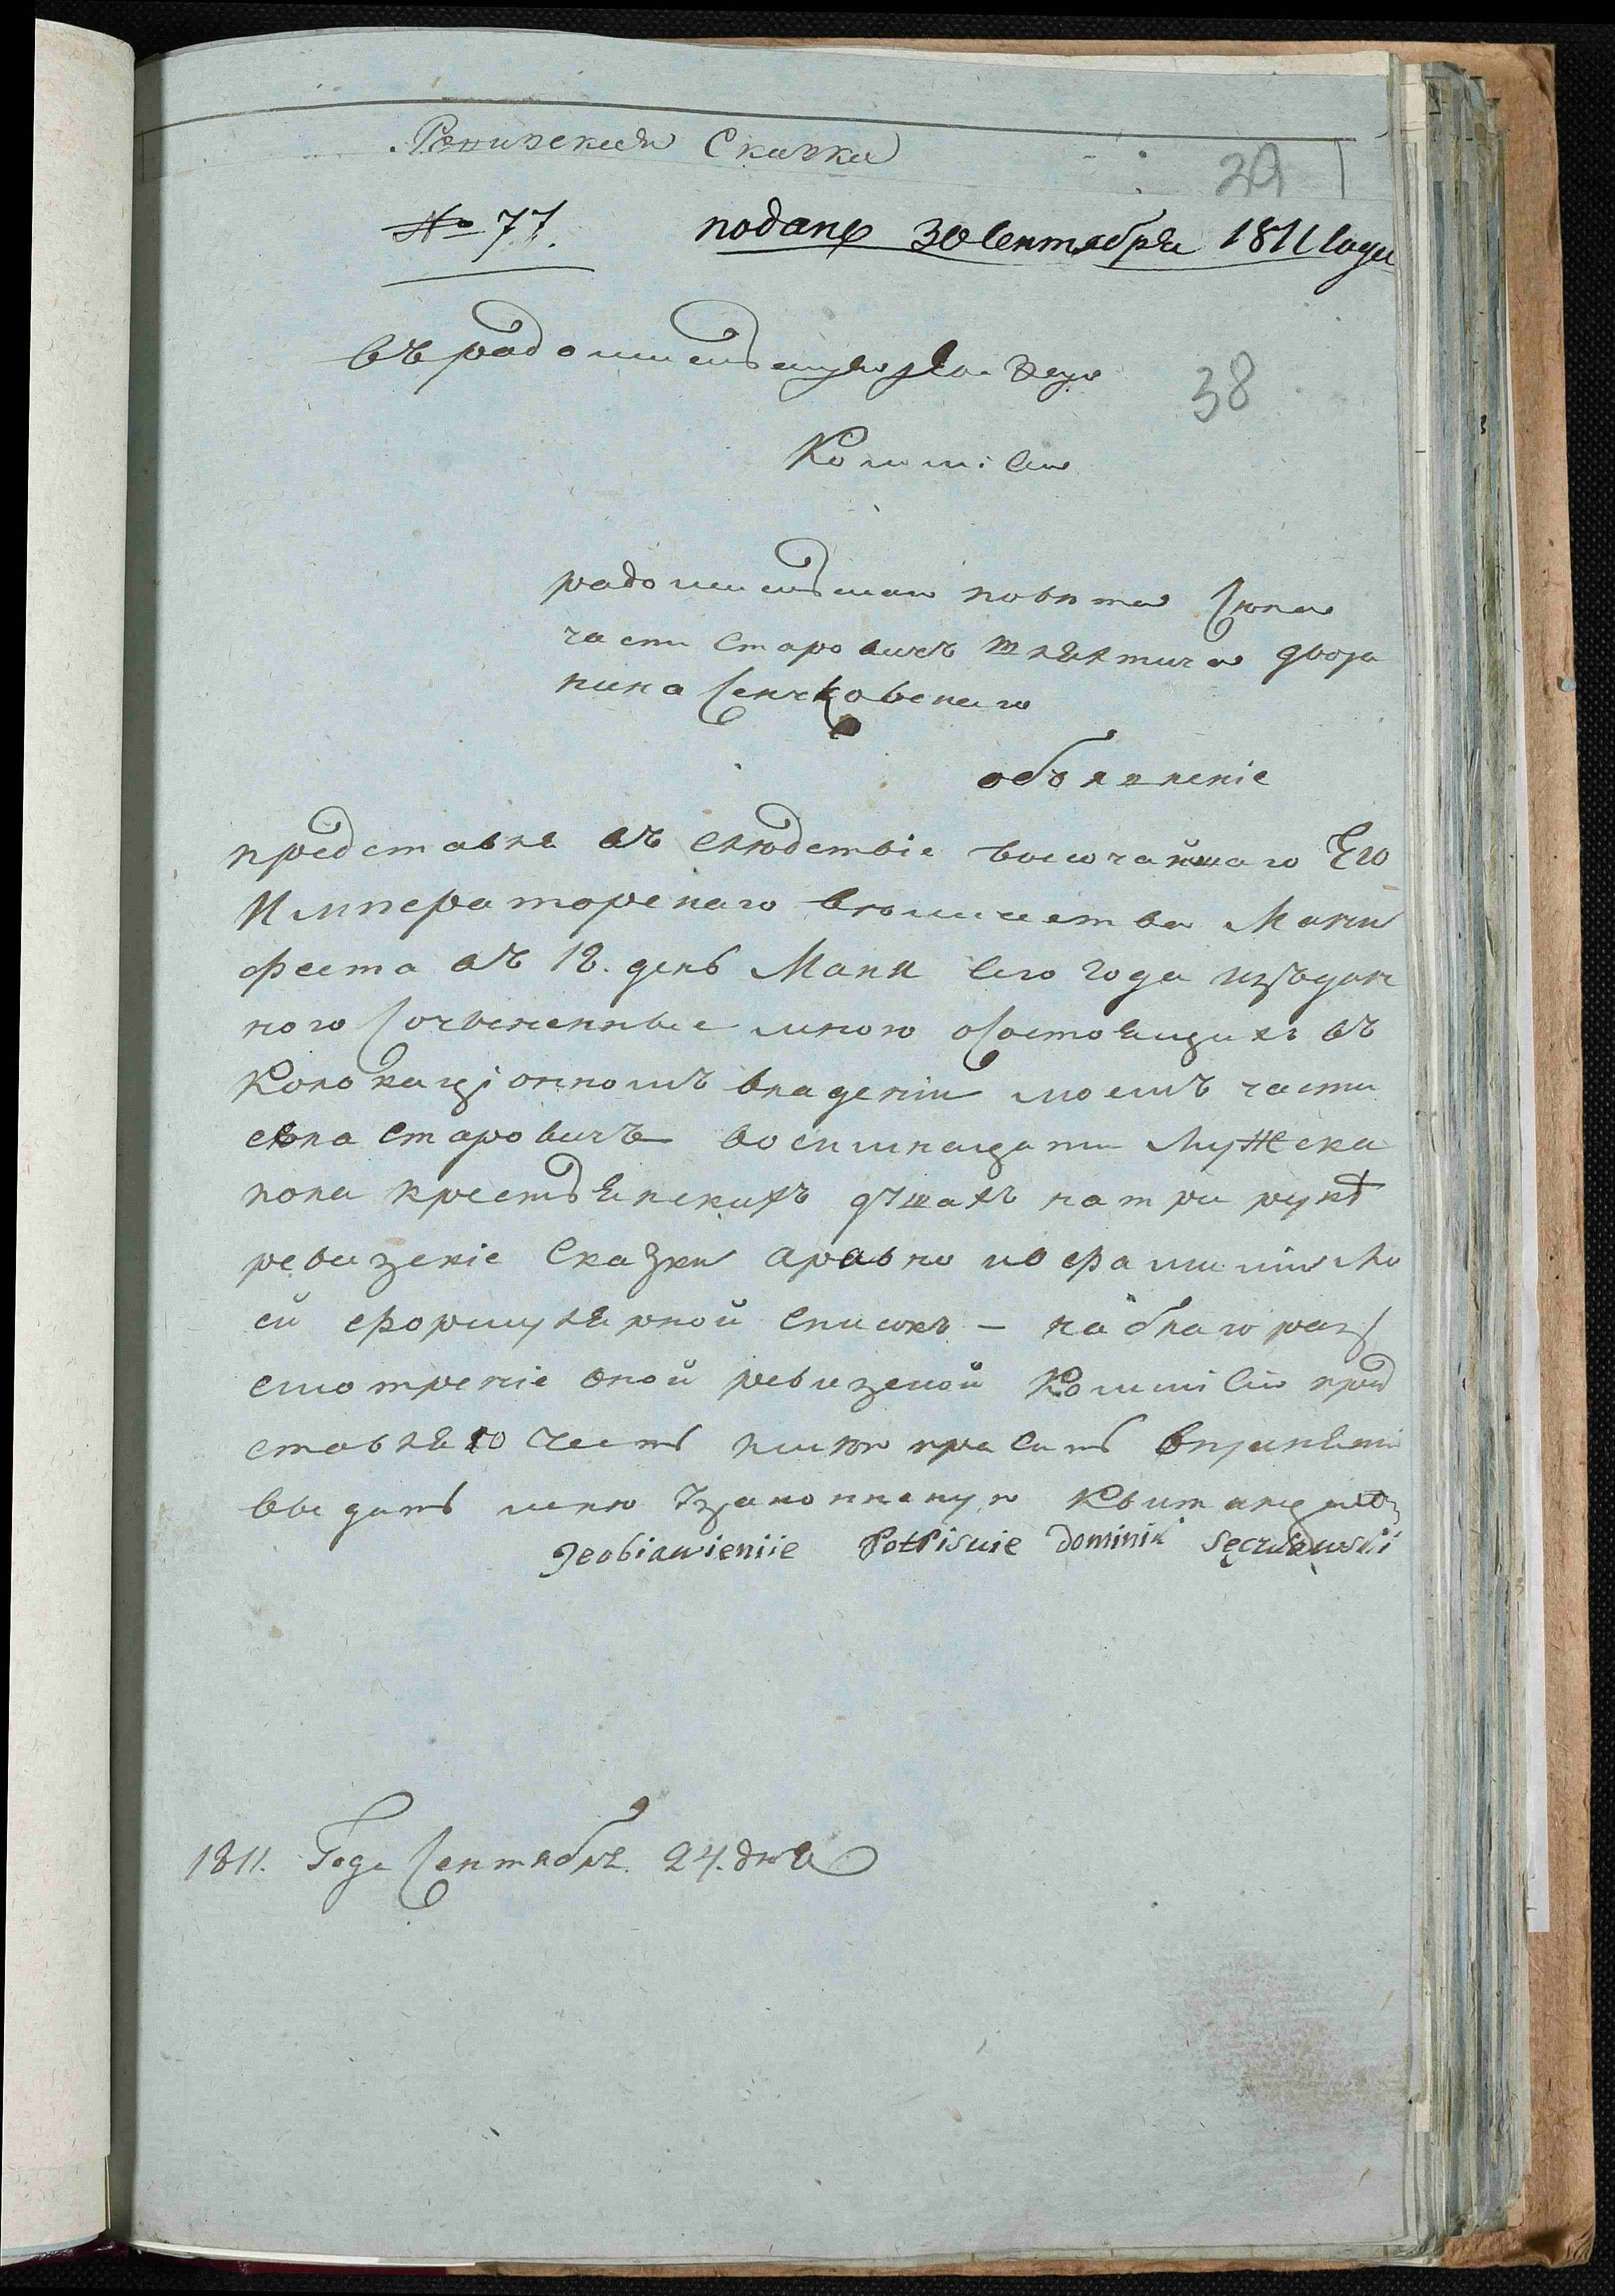 Ревизская Сказка
29
№ 77. подано 30 Сентября 1811 года
въ радомисльскую
38
Коммисию
радомисльскаго повета Села
части Старовичъ шляхтича дворя
нина Сенчковскаго
объявленіе
представля въ слюдствіе высочайшаго Его
Императорскаго величества Мани
феста въ 18. день Маия сего года изъдан
ного Сочененные мною о состоящихъ въ
Колокаціонномъ владении моемъ части
села Старовичъ восимнацати мужска
пола крестьянскихъ душахъ на три рукѣ
ревизскіе Сказки а равно и о фамилии мо
ей формулярной Списокъ – на благораз
смотреніе оной ревизской Коммисии пред
ставляю честь имею просить в принятии
выдать мню узаконненую Квитанцию
Jeobiawieniie Potpisuie Dominik Sęczkowskii
1811. Года Сентября. 24. дня